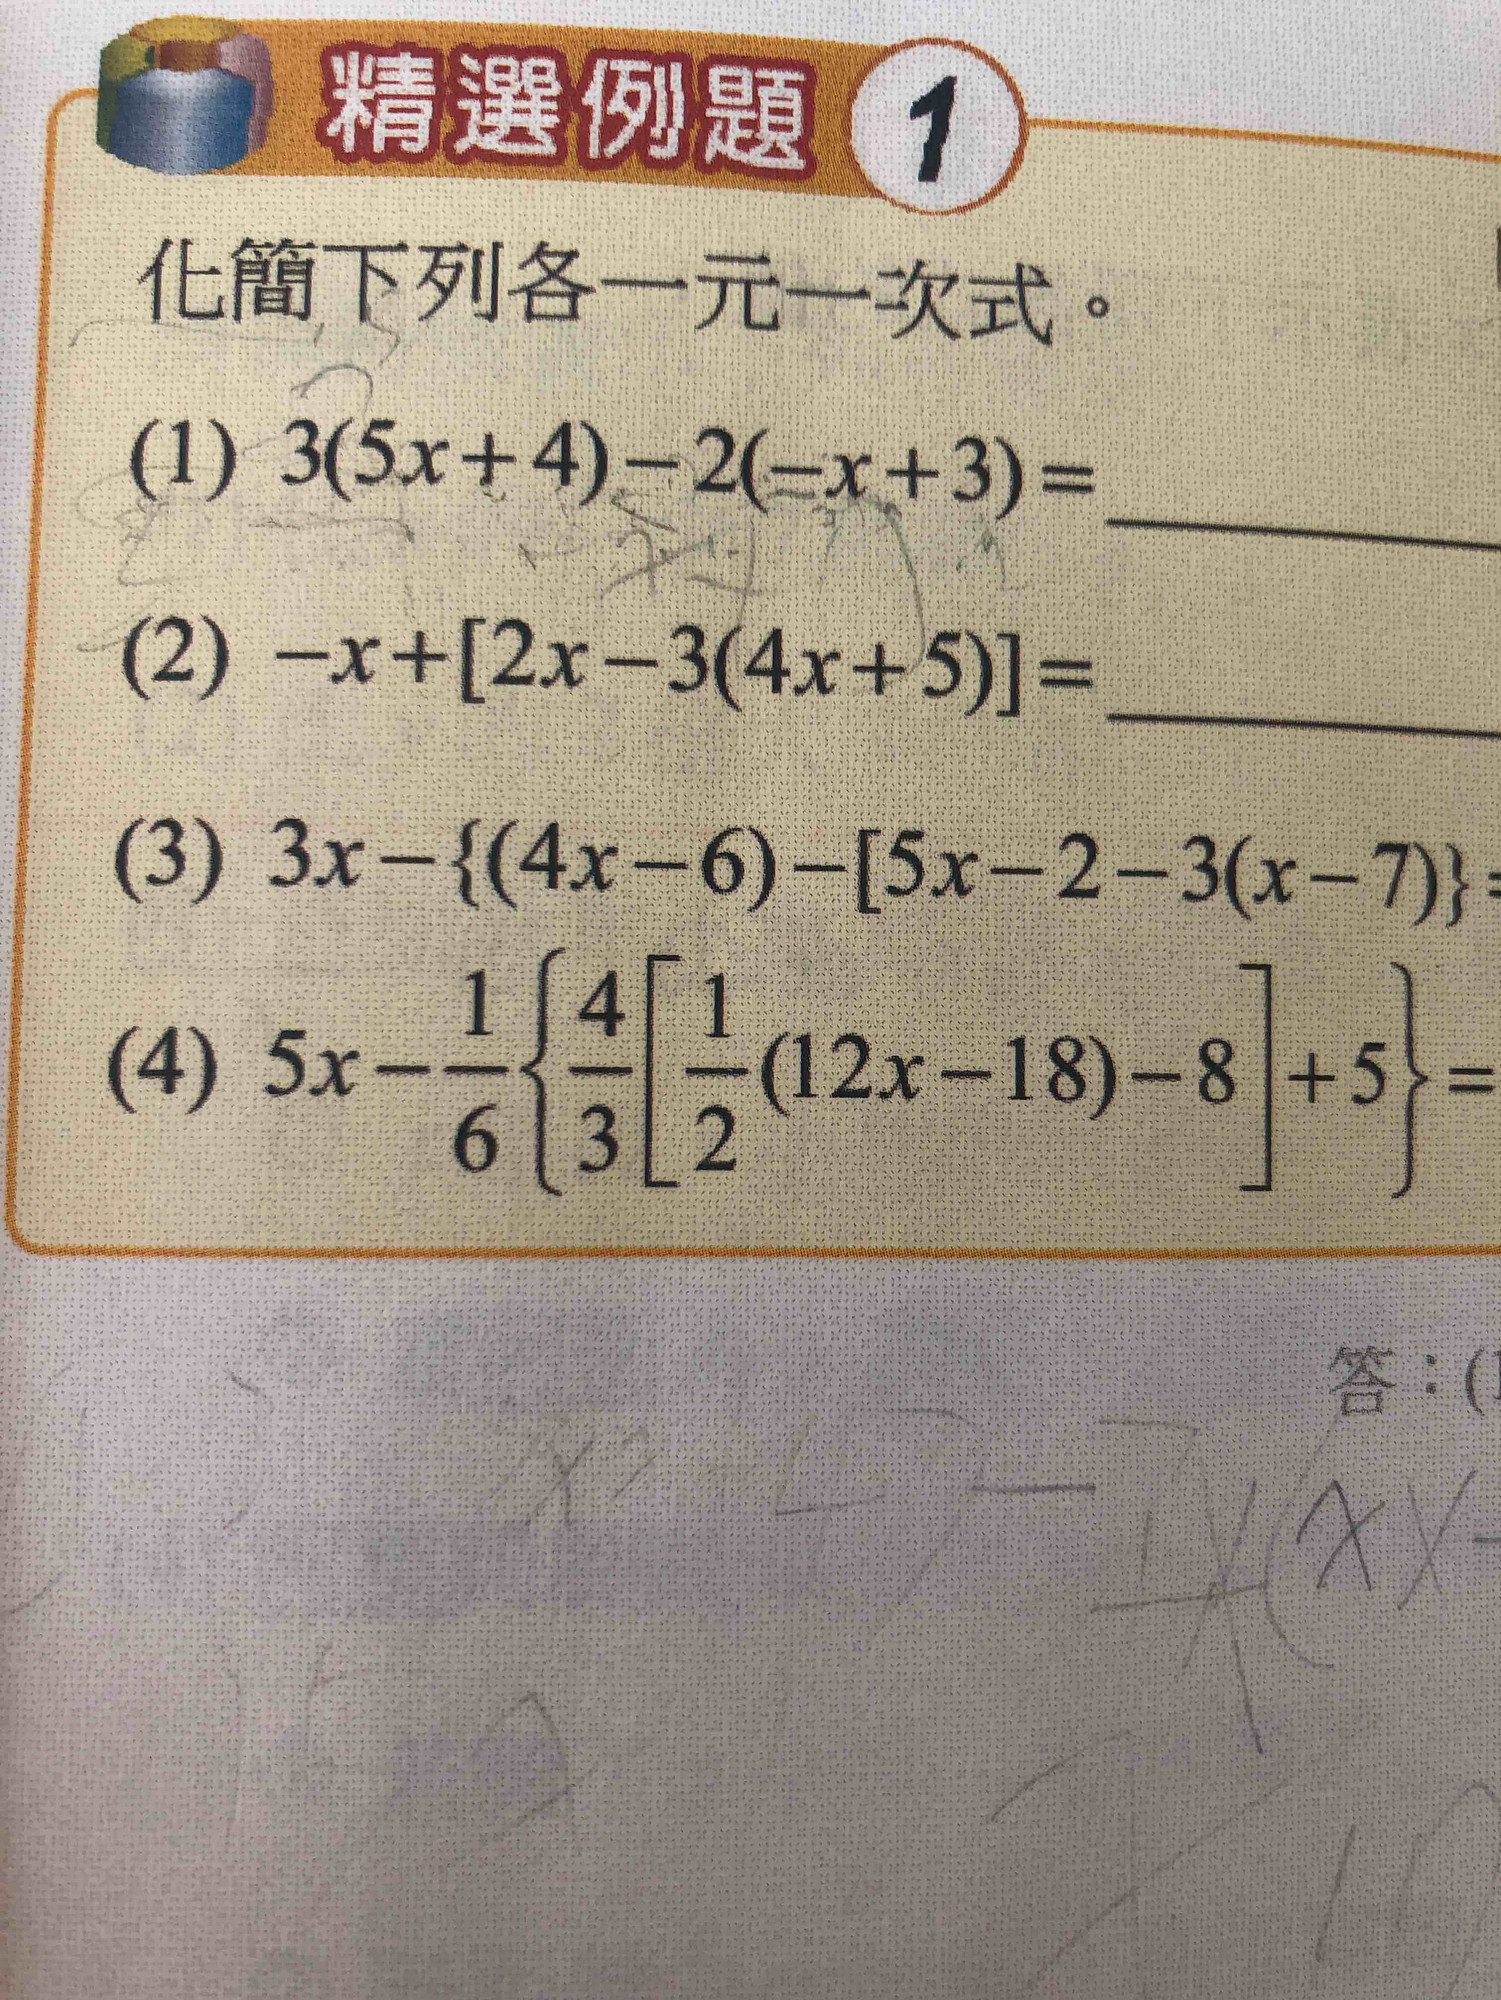 精選例題 1
化簡下列各一元一次式。
(1) 3(5x+4)−2(−x+3)=
(2) −x+[2x−3(4x+5)]=
(3) 3x−{(4x−6)−[5x−2−3(x−7)}=
(4) 5x−1/6{4/3[1/2(12x−18)−8]+5}=
答：(1